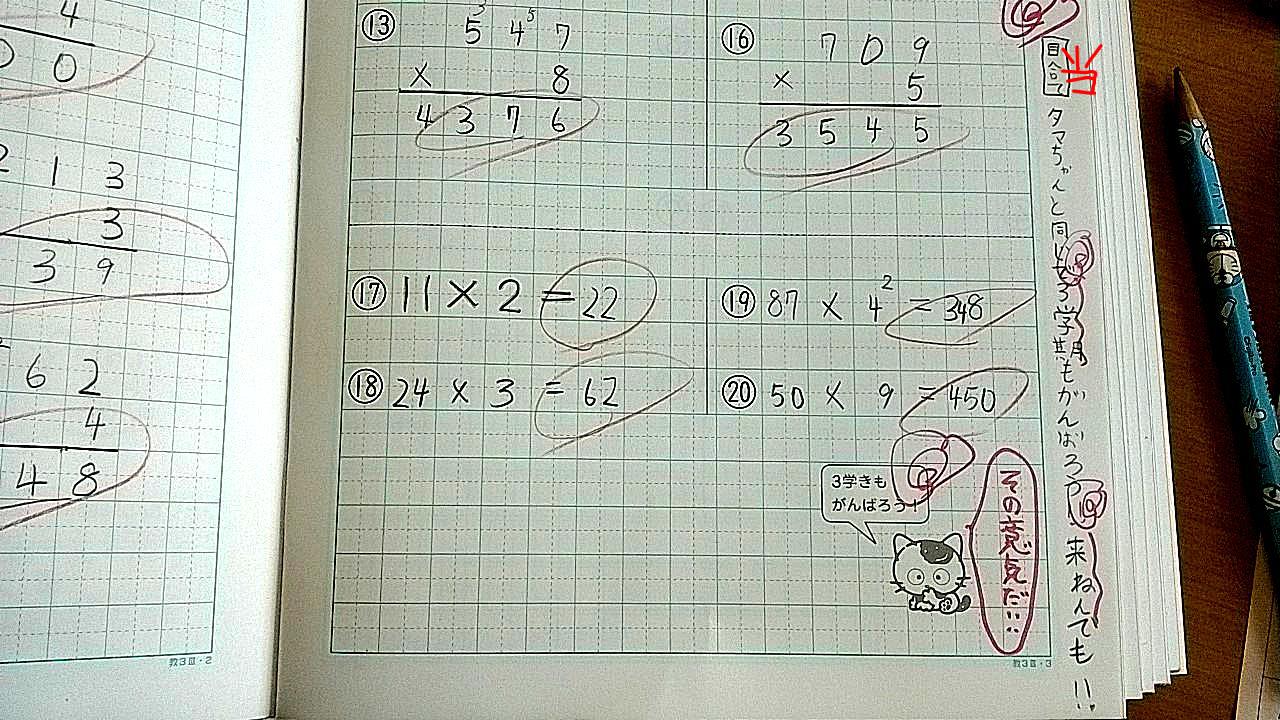 4
0 0
2 1 3
3
3 9
6 2
4
4 8
教3Ⅲ・2
⑬ 5³ 4⁵ 7
× 8
4 3 7 6
⑯ 7 0 9
× 5
3 5 4 5
⑰ 11 × 2 = 22
⑱ 24 × 3 = 62
⑲ 87 × 4² = 348
⑳ 50 × 9 = 450
3学きも
がんばろう!
その意気だ!!
教3Ⅲ・3
目合て
当
タマちゃんと同じで3学期もがんばろう!来ねんでも!!